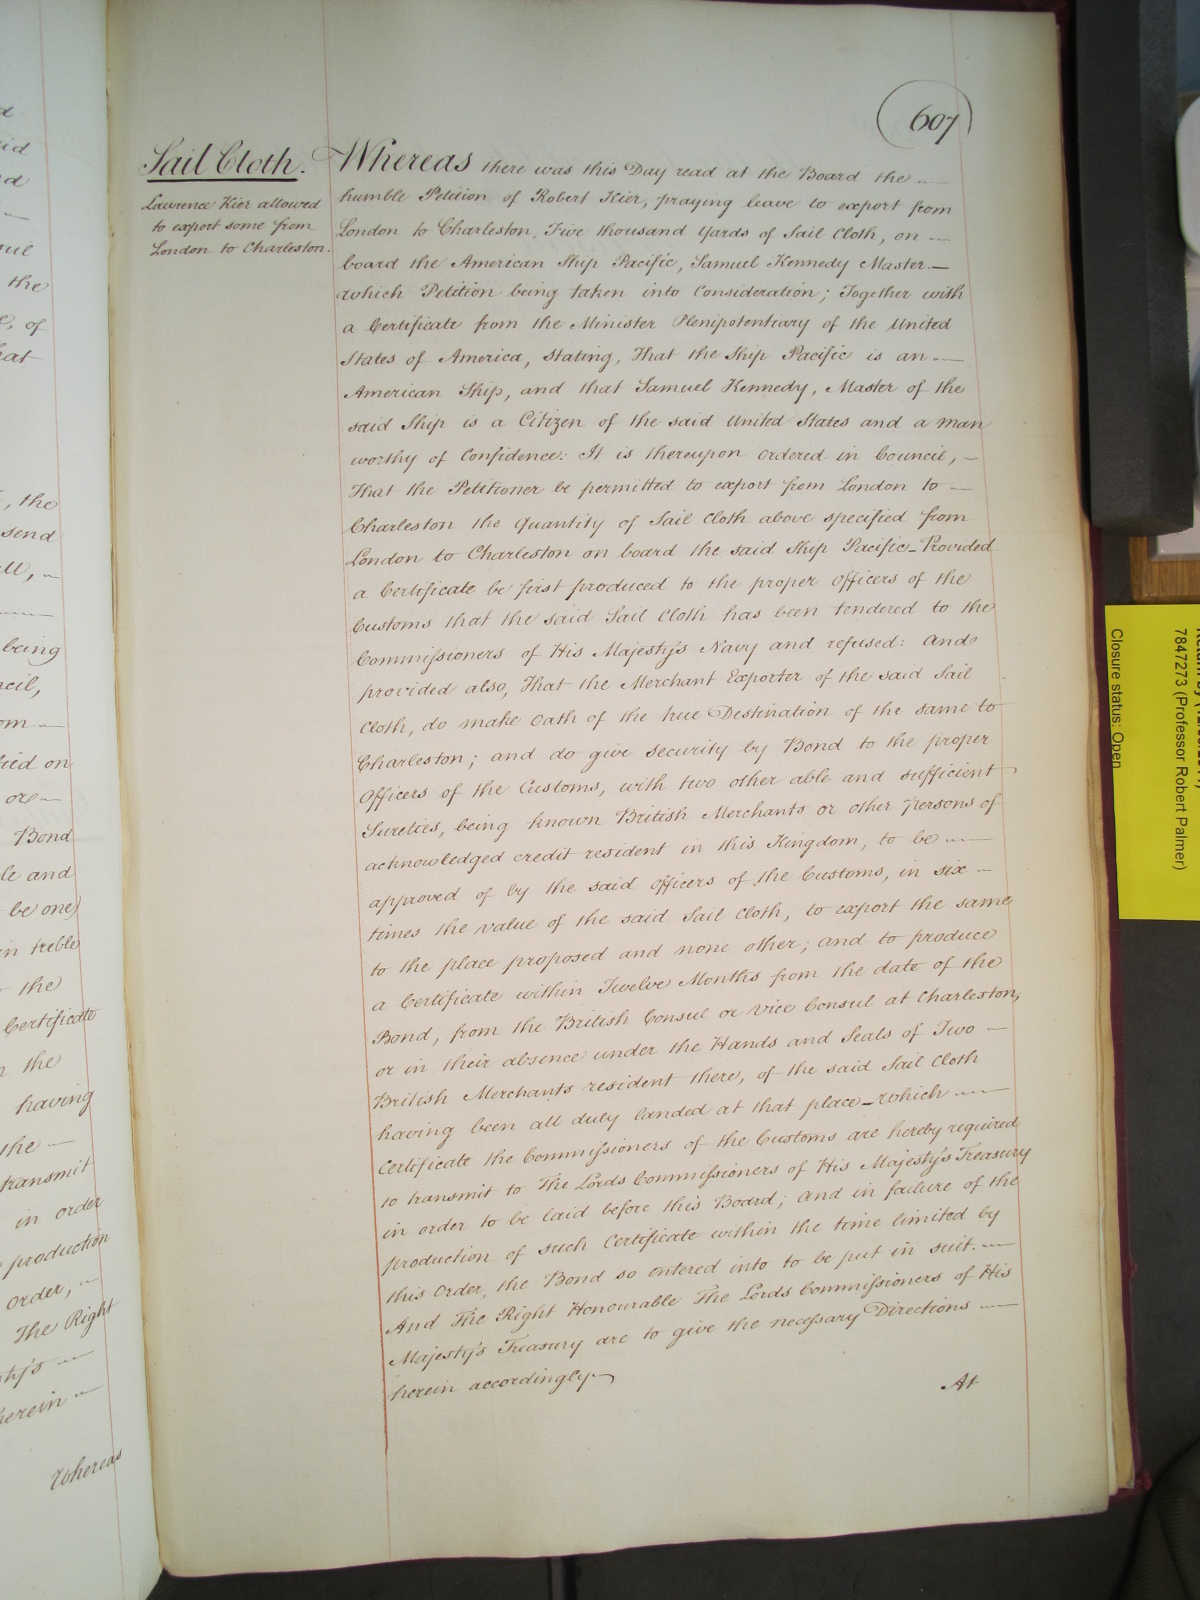 607
Sail Cloth.
Lawrence Kier allowed
to export some from
London to Charleston.
Whereas there was this Day read at the Board the
humble Petition of Robert Kier, praying leave to export from
London to Charleston, Five thousand Yards of Sail Cloth, on
board the American Ship Pacific, Samuel Kennedy Master.
which Petition being taken into Consideration; Together with
a Certificate from the Minister Plenipotentiary of the United
States of America, stating, That the Ship Pacific is an
American Ship, and that Samuel Kennedy, Master of the
said Ship is a Citizen of the said United States and a man
worthy of Confidence: It is thereupon ordered in Council,
That the Petitioner be permitted to export from London to
Charleston the Quantity of Sail Cloth above specified from
London to Charleston on board the said Ship Pacific – Provided
a Certificate be first produced to the proper Officers of the
Customs that the said Sail Cloth has been tendered to the
Commissioners of His Majesty's Navy and refused: And
provided also, That the Merchant Exporter of the said Sail
Cloth, do make Oath of the true Destination of the same to
Charleston; and do give security by Bond to the proper
Officers of the Customs, with two other able and sufficient
Sureties, being known British Merchants or other Persons of
acknowledged credit resident in this Kingdom, to be
approved of by the said Officers of the Customs, in six
times the value of the said Sail Cloth, to export the same
to the place proposed and none other; and to produce
a Certificate within Twelve Months from the date of the
Bond, from the British Consul or Vice Consul at Charleston,
or in their absence under the Hands and Seals of Two
British Merchants resident there, of the said Sail Cloth
having been all duly landed at that place – which
Certificate the Commissioners of the Customs are hereby required
to transmit to The Lords Commissioners of His Majesty's Treasury
in order to be laid before this Board; and in failure of the
production of such Certificate within the time limited by
this Order, the Bond so entered into to be put in suit.
And The Right Honourable The Lords Commissioners of His
Majesty's Treasury are to give the necessary Directions
herein accordingly
At
the
send
being
Bond
le and
be one)
in treble
the
Certificate
the
having
the
transmit
in order
production
order,
The Right
herein
Whereas
7847273 (Professor Robert Palmer)
Closure status: Open